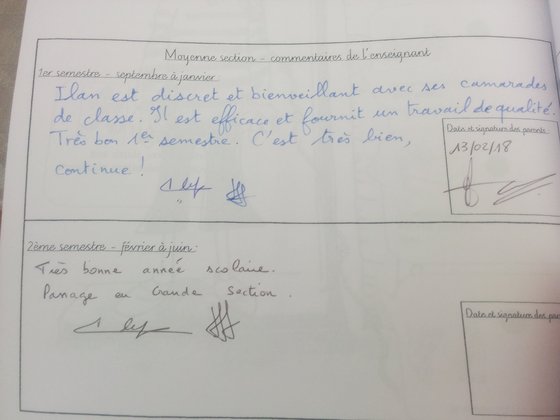 Moyenne section - commentaires de l'enseignant
1er semestre - septembre à janvier
Ilan est discret et bienveillant avec ses camarades
de classe. Il est efficace et fournit un travail de qualité.
Très bon 1er semestre. C'est très bien,
continue !
Date et signature des parents
13/02/18
2ème semestre - février à juin :
Très bonne année scolaire.
Passage en Grande Section.
Date et signature des par